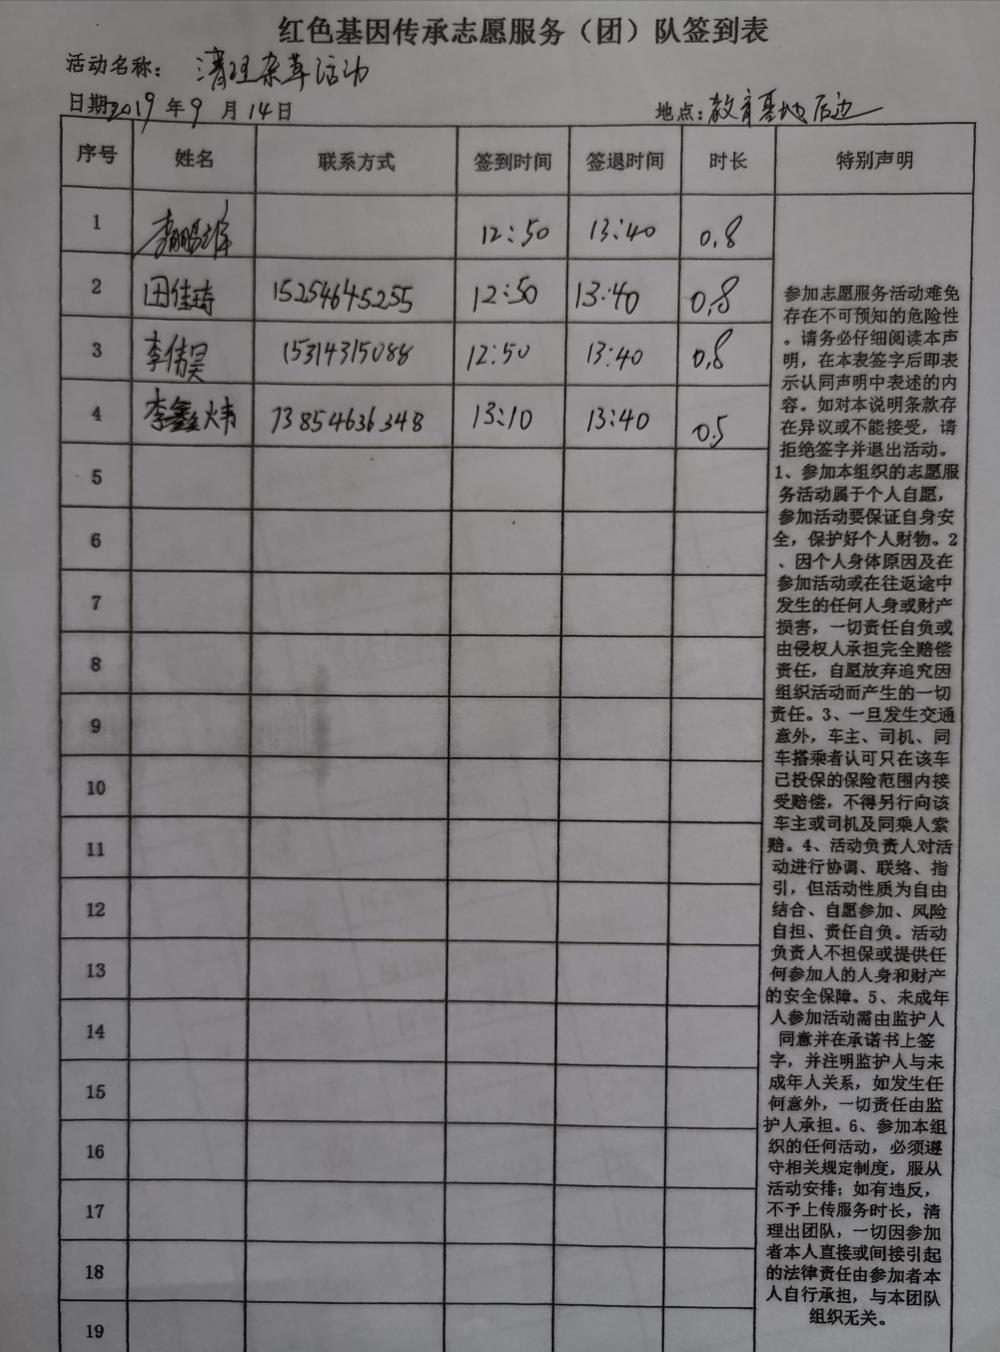 红色基因传承志愿服务（团）队签到表
活动名称： 清理杂草活动
日期2019年9月14日 地点：教育基地后边
序号 姓名 联系方式 签到时间 签退时间 时长 特别声明
1 12:50 13:40 0.8
2 田佳琦 15254645255 12:50 13:40 0.8
3 李伟昊 15314315088 12:50 13:40 0.8
4 李鑫炜 13854636348 13:10 13:40 0.5
5
6
7
8
9
10
11
12
13
14
15
16
17
18
19
参加志愿服务活动难免
存在不可预知的危险性
。请务必仔细阅读本声
明，在本表签字后即表
示认同声明中表述的内
容。如对本说明条款存
在异议或不能接受，请
拒绝签字并退出活动。
1、参加本组织的志愿服
务活动属于个人自愿，
参加活动要保证自身安
全，保护好个人财物。2
、因个人身体原因及在
参加活动或在往返途中
发生的任何人身或财产
损害，一切责任自负或
由侵权人承担完全赔偿
责任，自愿放弃追究因
组织活动而产生的一切
责任。3、一旦发生交通
意外，车主、司机、同
车搭乘者认可只在该车
已投保的保险范围内接
受赔偿，不得另行向该
车主或司机及同乘人索
赔。4、活动负责人对活
动进行协调、联络、指
引，但活动性质为自由
结合、自愿参加、风险
自担、责任自负。活动
负责人不担保或提供任
何参加人的人身和财产
的安全保障。5、未成年
人参加活动需由监护人
同意并在承诺书上签
字，并注明监护人与未
成年人关系，如发生任
何意外，一切责任由监
护人承担。6、参加本组
织的任何活动，必须遵
守相关规定制度，服从
活动安排；如有违反，
不予上传服务时长，清
理出团队，一切因参加
者本人直接或间接引起
的法律责任由参加者本
人自行承担，与本团队
组织无关。